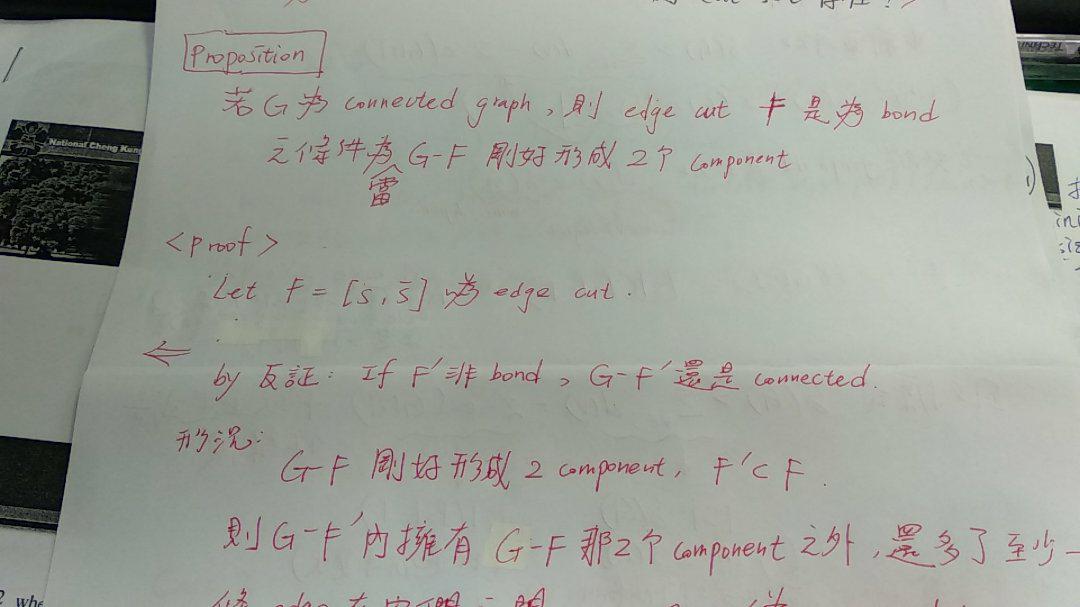 Proposition
若 G 為 connected graph, 則 edge cut F 是為 bond
之條件為 G-F 剛好形成 2个 component
需
<proof>
Let F = [s, s̄] 為 edge cut.
⇐
by 反証: If F' 非 bond, G-F' 還是 connected.
形況:
G-F 剛好形成 2 component, F'⊂F.
則 G-F' 內擁有 G-F 那2个 component 之外, 還多了至少一
條 edge 在它們之間
National Cheng Kun
TECHNI
1)
ini